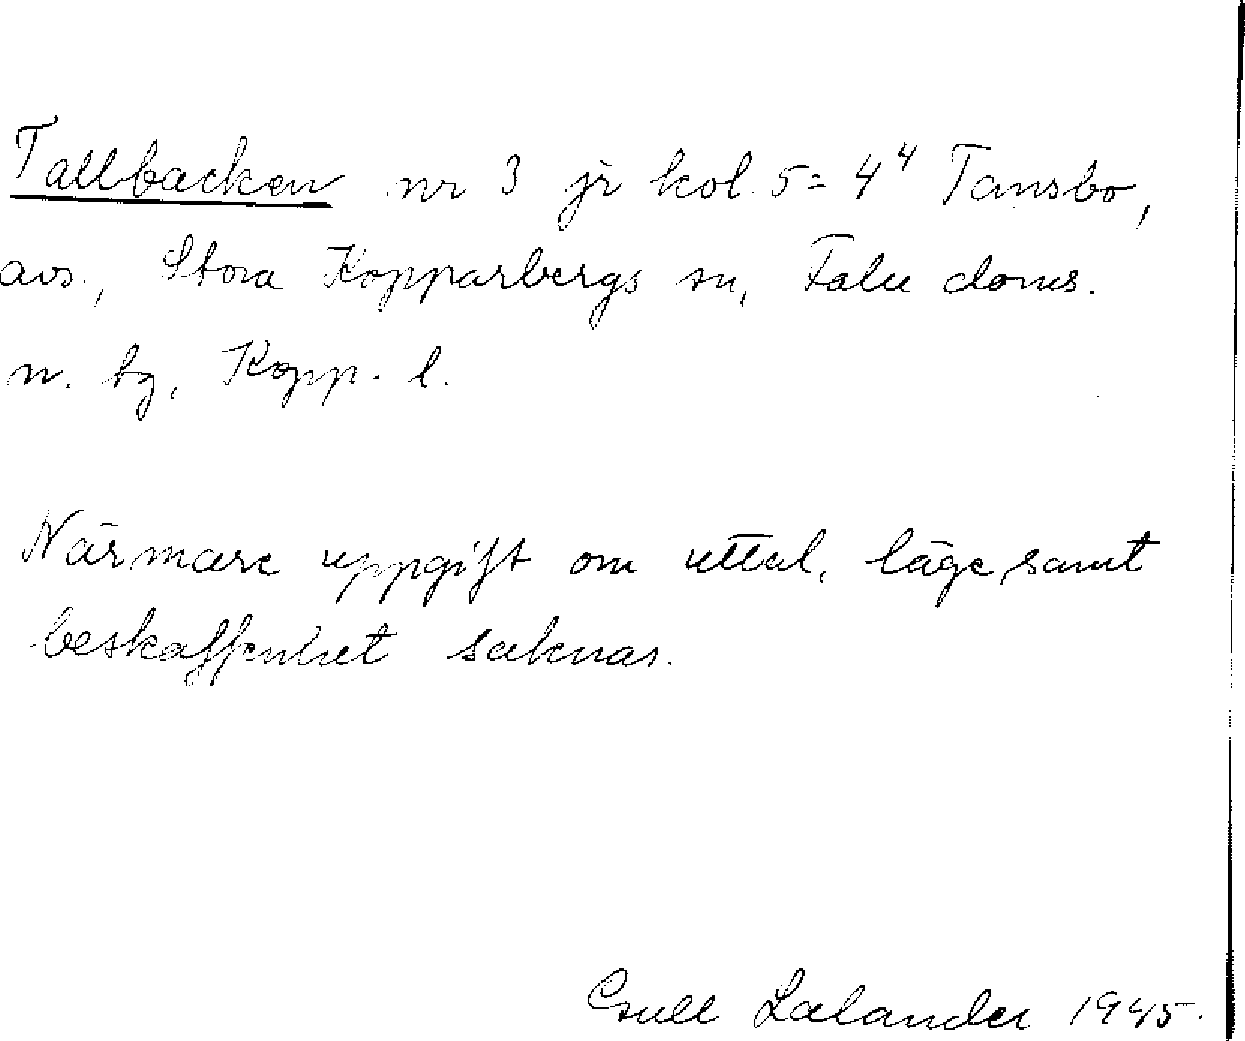 Tallbacken nr 3 jr kol. 5 = 4⁴ Tansbo,
avs., Stora Kopparbergs sn, Falu doms.
n. tg, Kopp. l.
Närmare uppgift om uttal, läge, samt
beskaffenhet saknas.
Gull Lalander 1945.